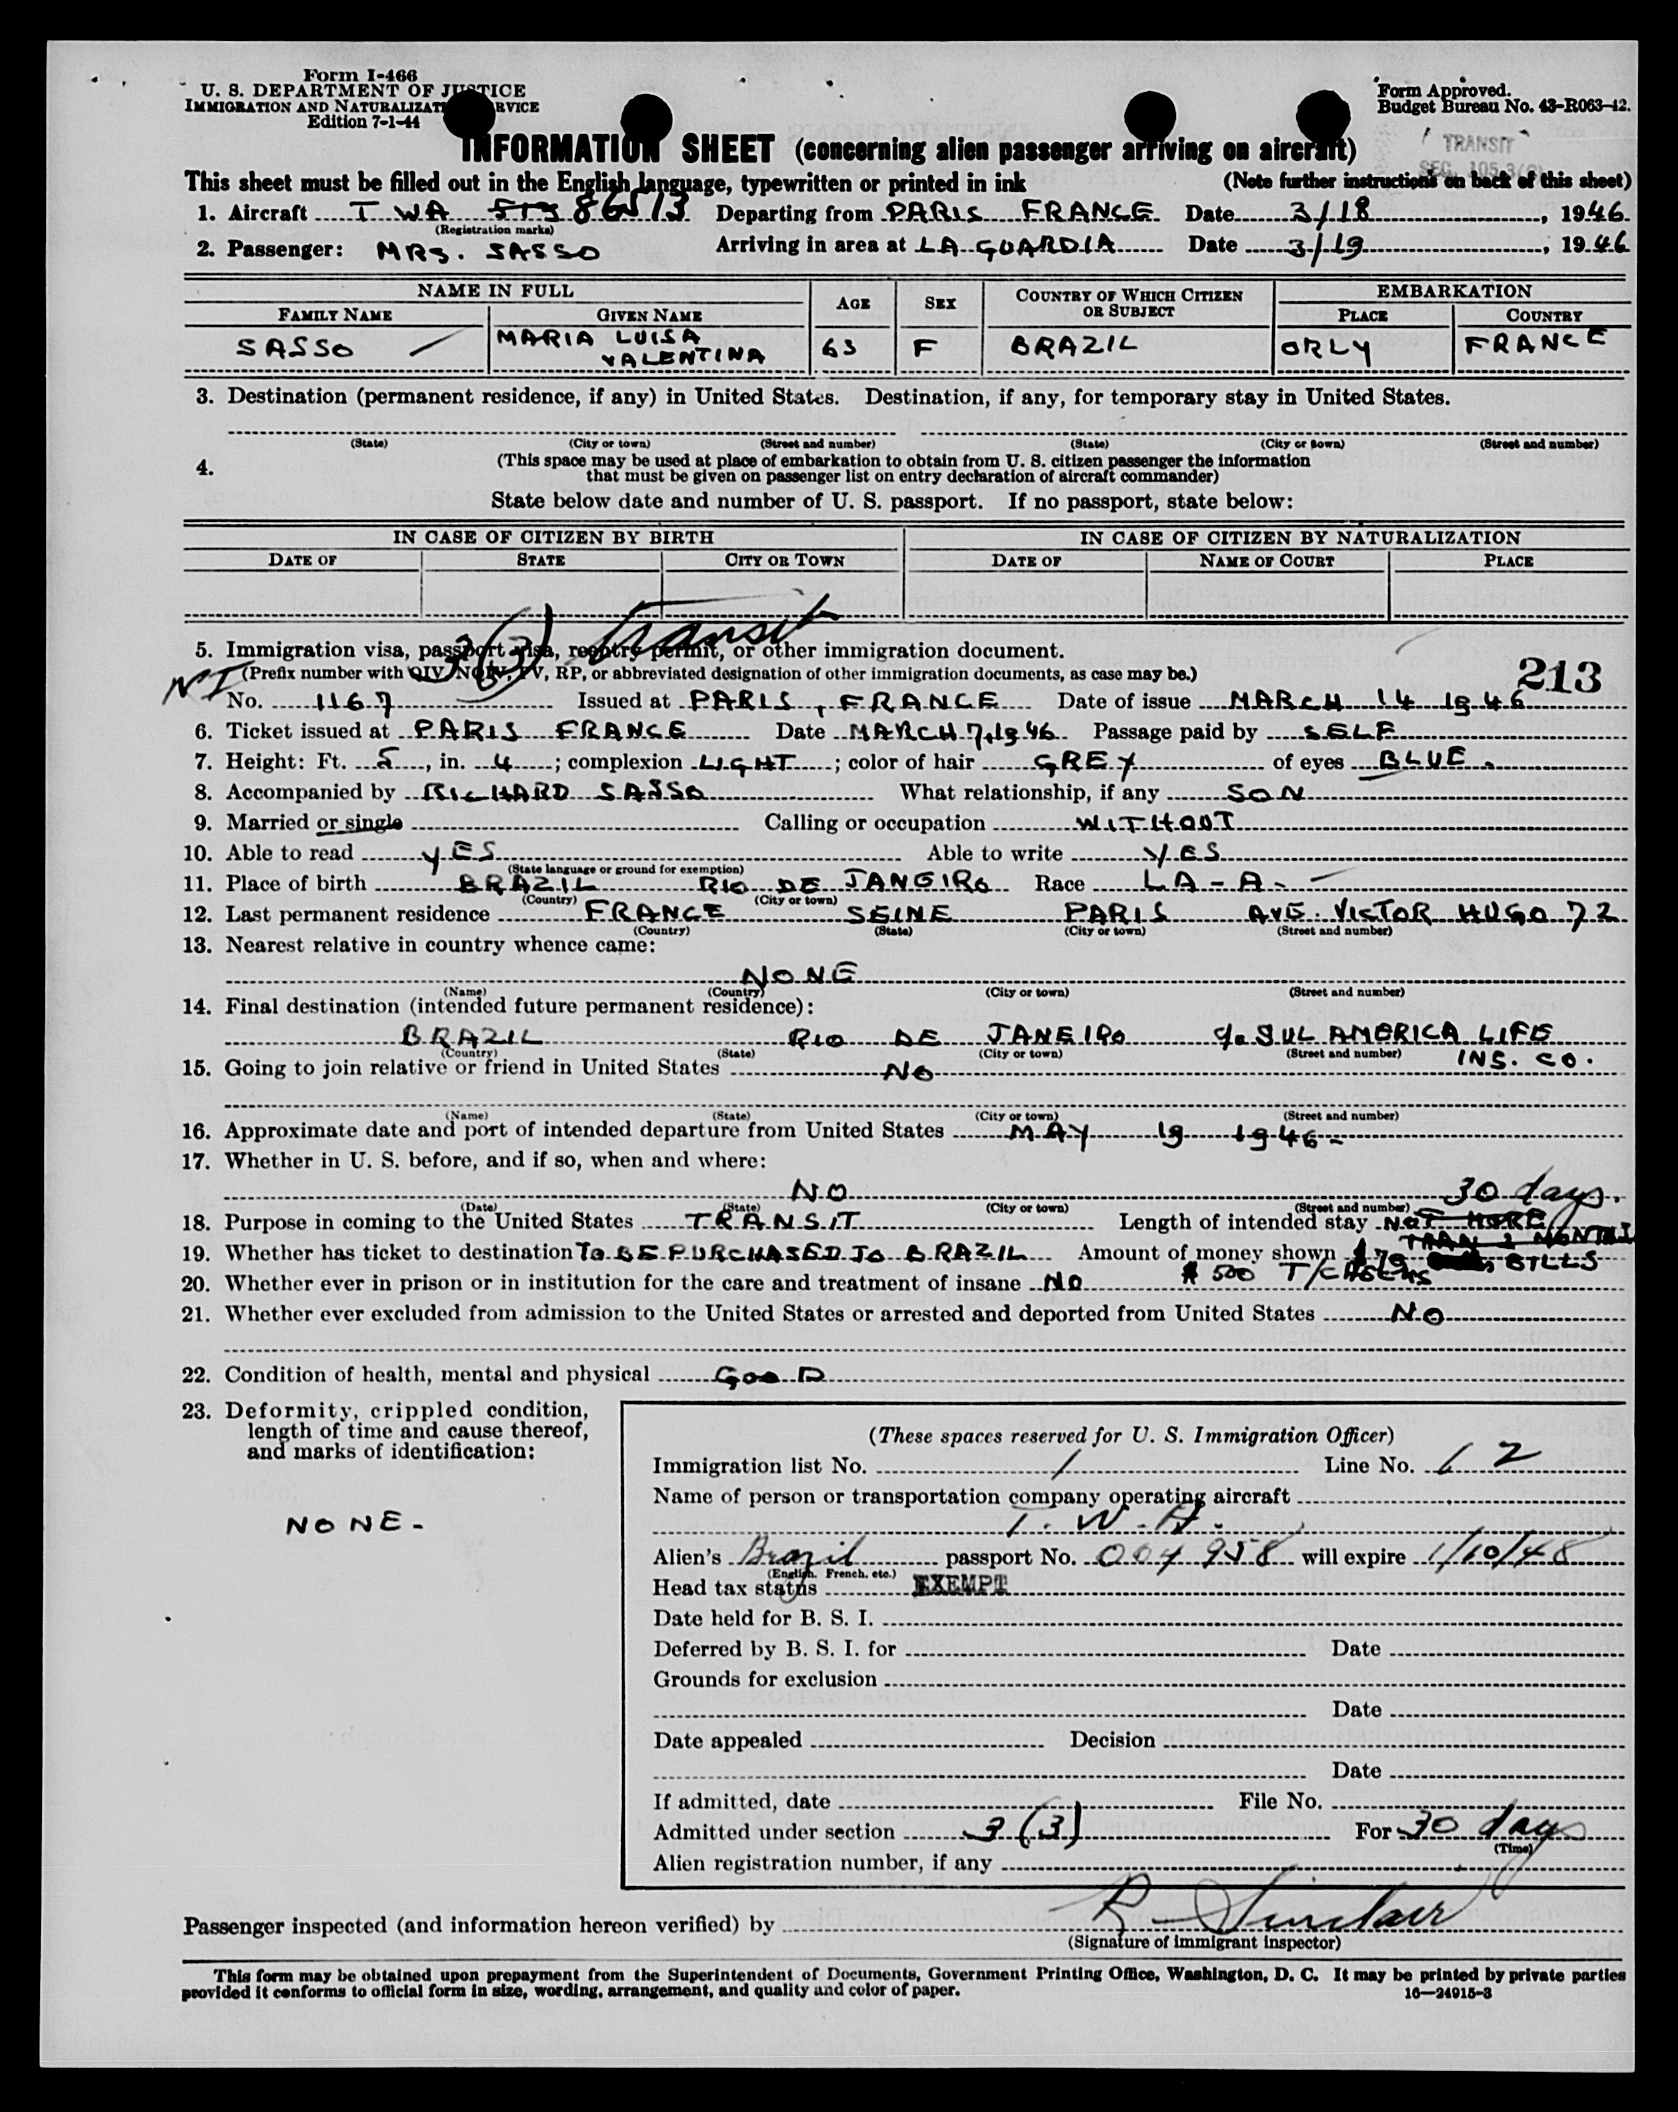 Form I-466
U. S. DEPARTMENT OF JUSTICE
IMMIGRATION AND NATURALIZATION SERVICE
Edition 7-1-44
Form Approved.
Budget Bureau No. 43-R063-42.
INFORMATION SHEET (concerning alien passenger arriving on aircraft)
TRANSIT
This sheet must be filled out in the English language, typewritten or printed in ink (Note further instructions on back of this sheet)
1. Aircraft TWA 86513 Departing from PARIS FRANCE Date 3/18, 1946
(Registration marks)
2. Passenger: MRS. SASSO Arriving in area at LA GUARDIA Date 3/19, 1946
NAME IN FULL AGE SEX COUNTRY OF WHICH CITIZEN OR SUBJECT EMBARKATION
FAMILY NAME GIVEN NAME PLACE COUNTRY
SASSO MARIA LUISA VALENTINA 63 F BRAZIL ORLY FRANCE
3. Destination (permanent residence, if any) in United States. Destination, if any, for temporary stay in United States.
(State) (City or town) (Street and number) (State) (City or town) (Street and number)
4. (This space may be used at place of embarkation to obtain from U. S. citizen passenger the information
that must be given on passenger list on entry declaration of aircraft commander)
State below date and number of U. S. passport. If no passport, state below:
IN CASE OF CITIZEN BY BIRTH IN CASE OF CITIZEN BY NATURALIZATION
DATE OF STATE CITY OR TOWN DATE OF NAME OF COURT PLACE
3(3) Transit
5. Immigration visa, passport visa, reentry permit, or other immigration document.
(Prefix number with QIV, NQIV, PV, RP, or abbreviated designation of other immigration documents, as case may be.) 213
No. 1167 Issued at PARIS, FRANCE Date of issue MARCH 14 1946
6. Ticket issued at PARIS FRANCE Date MARCH 7, 1946 Passage paid by SELF
7. Height: Ft. 5, in. 4; complexion LIGHT; color of hair GREY of eyes BLUE.
8. Accompanied by RICHARD SASSO What relationship, if any SON
9. Married or single Calling or occupation WITHOUT
10. Able to read YES Able to write YES
(State language or ground for exemption)
11. Place of birth BRAZIL RIO DE JANEIRO Race LA-A-
(Country) (City or town)
12. Last permanent residence FRANCE SEINE PARIS AVE. VICTOR HUGO 72
(Country) (State) (City or town) (Street and number)
13. Nearest relative in country whence came:
NONE
(Name) (Country) (City or town) (Street and number)
14. Final destination (intended future permanent residence):
BRAZIL RIO DE JANEIRO c/o SUL AMERICA LIFE
(Country) (State) (City or town) (Street and number) INS. CO.
15. Going to join relative or friend in United States NO
(Name) (State) (City or town) (Street and number)
16. Approximate date and port of intended departure from United States MAY 19 1946-
17. Whether in U. S. before, and if so, when and where:
NO 30 days.
(Date) (State) (City or town) (Street and number)
18. Purpose in coming to the United States TRANSIT Length of intended stay NOT MORE
THAN 2 MONTHS
19. Whether has ticket to destination TO BE PURCHASED TO BRAZIL Amount of money shown $ 79 BILLS
$ 500 T/CHECKS
20. Whether ever in prison or in institution for the care and treatment of insane NO
21. Whether ever excluded from admission to the United States or arrested and deported from United States NO
22. Condition of health, mental and physical GOOD
23. Deformity, crippled condition,
length of time and cause thereof,
and marks of identification:
NONE-
(These spaces reserved for U. S. Immigration Officer)
Immigration list No. 1 Line No. 2
Name of person or transportation company operating aircraft
T. W. A.
Alien's Brazil passport No. 004958 will expire 1/10/48
(English. French. etc.)
Head tax status EXEMPT
Date held for B. S. I.
Deferred by B. S. I. for Date
Grounds for exclusion
Date
Date appealed Decision
Date
If admitted, date File No.
Admitted under section 3(3) For 30 days
(Time)
Alien registration number, if any
Passenger inspected (and information hereon verified) by R Sinclair
(Signature of immigrant inspector)
This form may be obtained upon prepayment from the Superintendent of Documents, Government Printing Office, Washington, D. C. It may be printed by private parties
provided it conforms to official form in size, wording, arrangement, and quality and color of paper. 16—24915-3